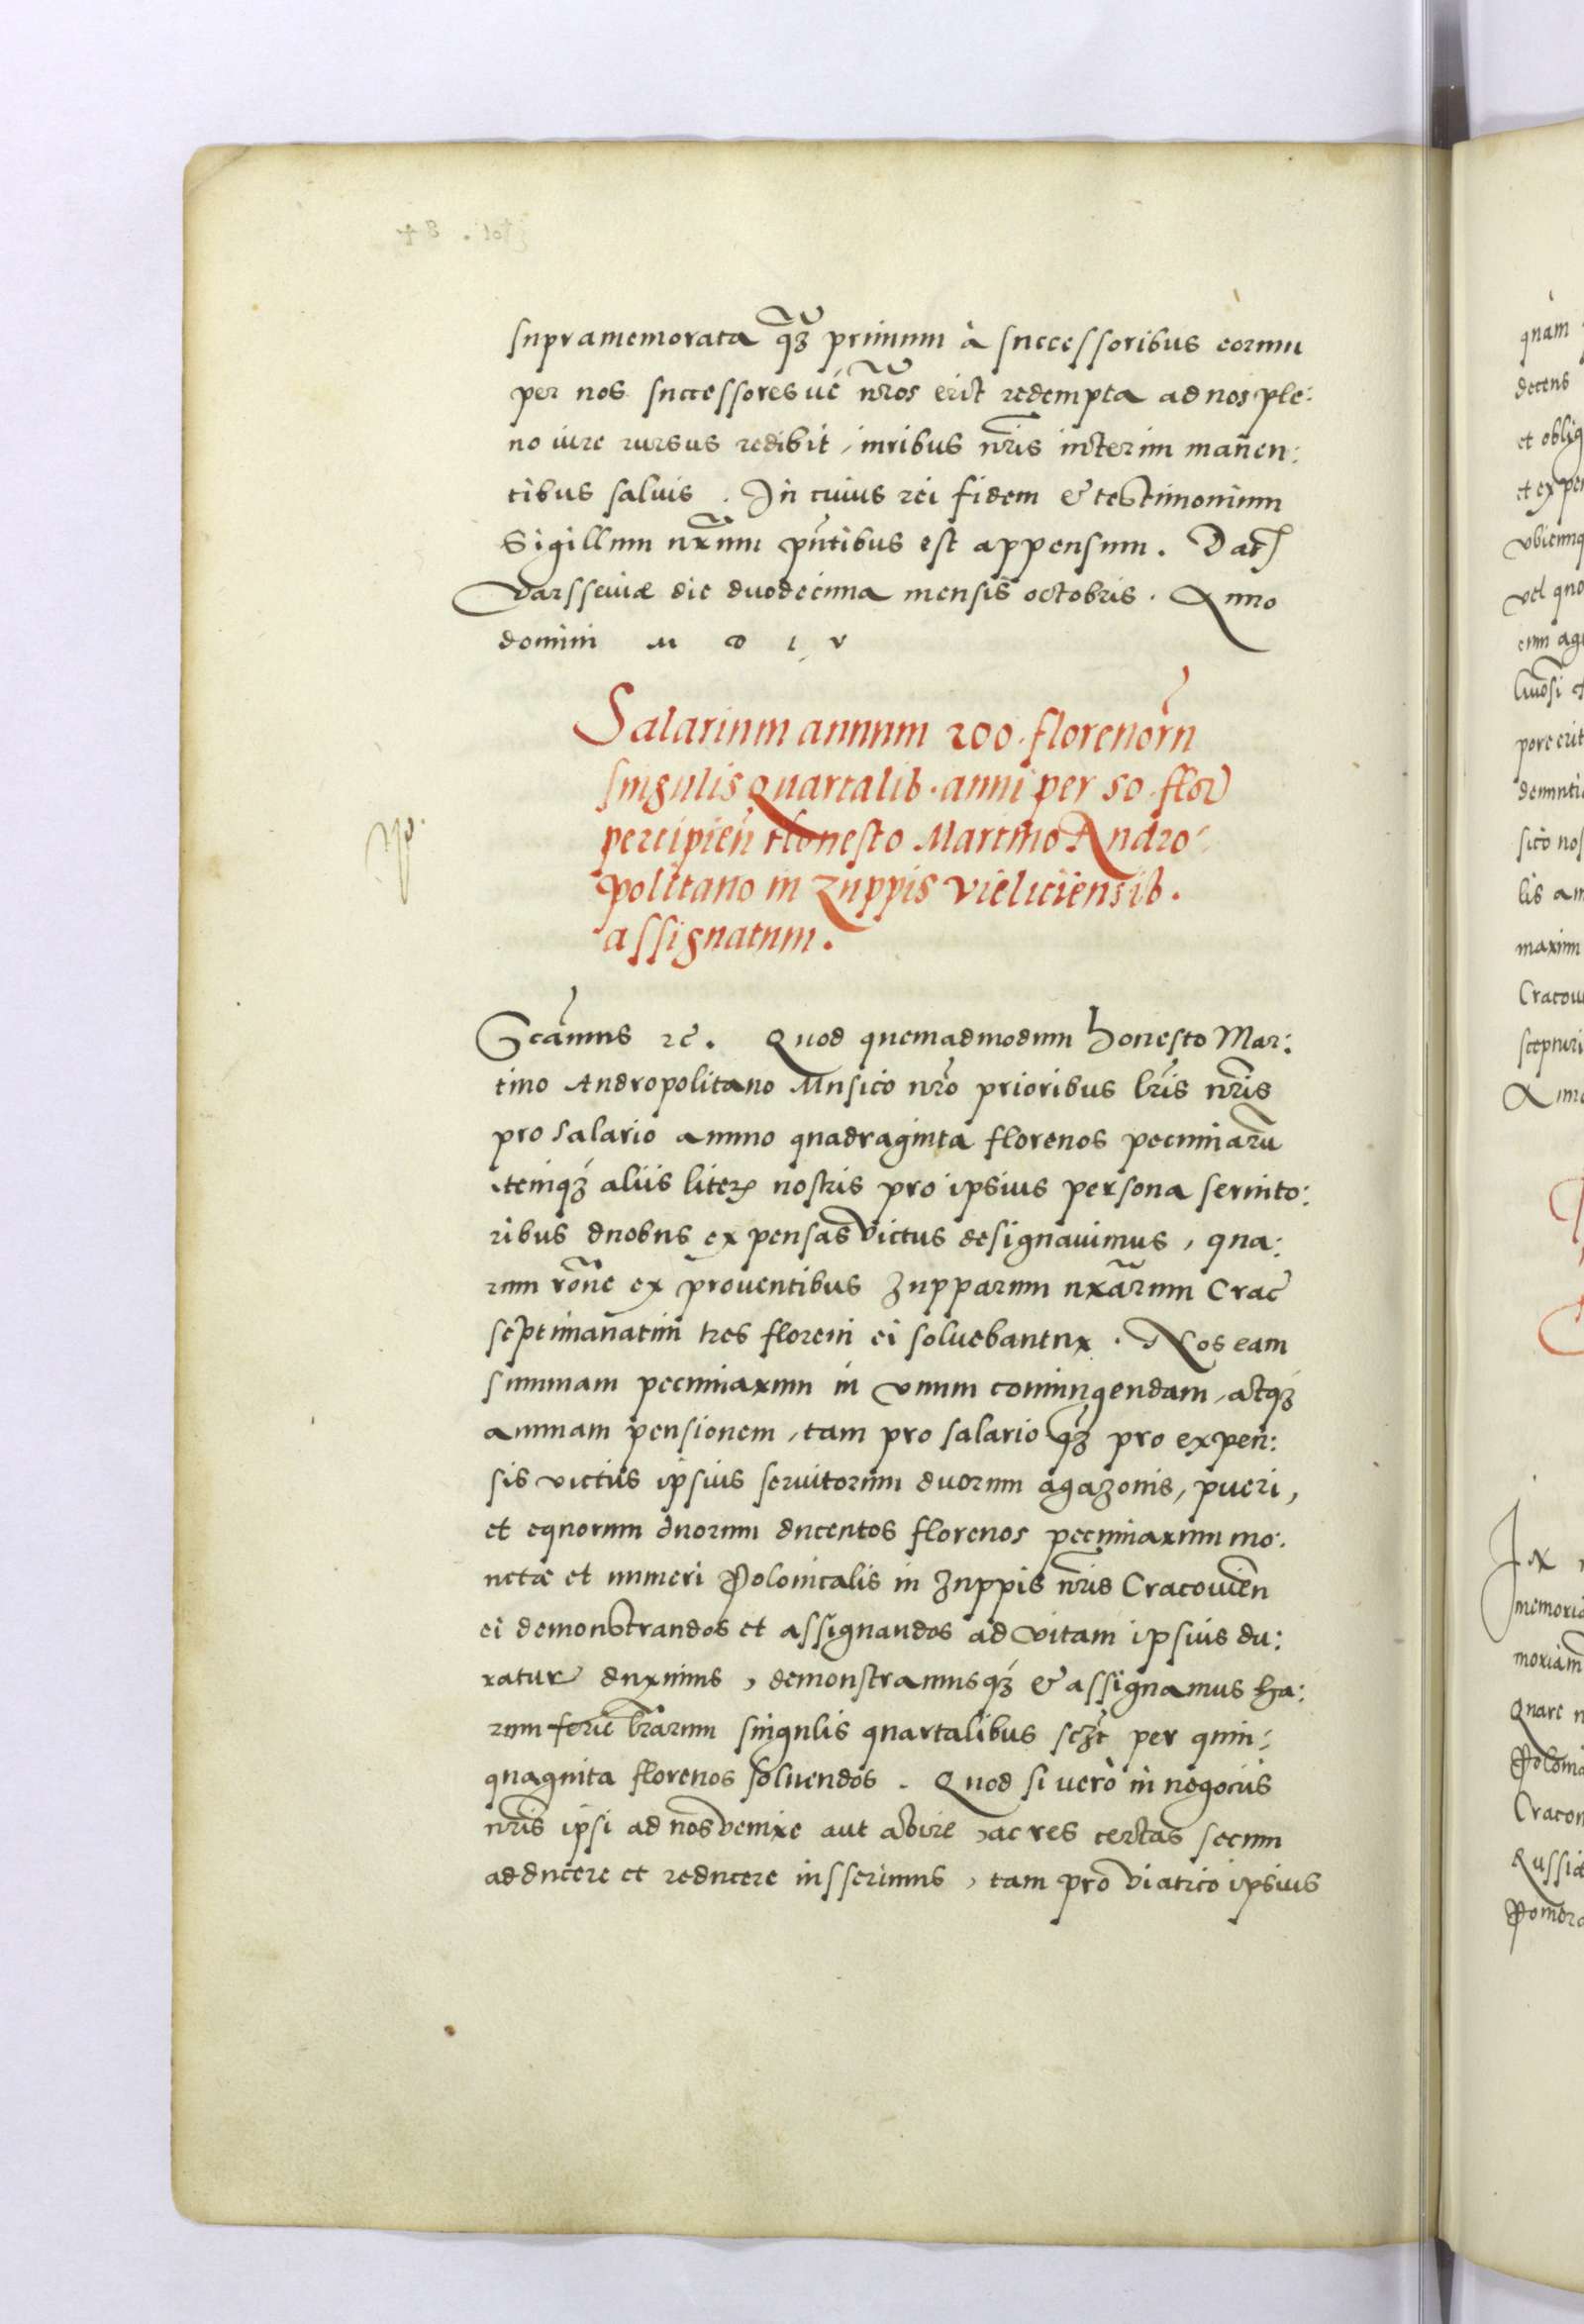 supramemorata q̃ꝫ primum à successoribus eorum
per nos successoresué nr̃os erit redempta ad nos ple:
no iure rursus redibit, iuribus nr̃is interim manen:
tibus saluis. In cuius rei fidem & testimonium
Sigillum nr̃um pñtibus est appensum. Dat
Varsseuiæ die duodecima mensis octobris. Anno
domini M D L V
Salarium annum 200. florenorũ
singulis quartalib. anni per 50. flor
percipien̄ Honesto Martino Andro:
politano in zuppis vieliciensib.
assignatum.
Sc̃amus ꝛc. Quod quemadmodum honesto Mar:
tino Andropolitano Musico nr̃o prioribus lr̃is nr̃is
pro salario annuo quadraginta florenos pecuniarũ
itemqꝫ aliis literꝭ nostris pro ipsius persona seruito:
ribus duobus expensas victus designauimus, qua:
rum rõne ex prouentibus zupparum nr̃arum Crac̃
septimanatim tres floreni ei soluebantur. Nos eam
summam pecuniarum in vnum coniungendam, atqꝫ
annuam pensionem, tam pro salario q̃ꝫ pro expen:
sis victus ipsius seruitorum duorum agazonis, pueri,
et equorum duorum ducentos florenos pecuniarum mo:
netæ et numeri Polonicalis in zuppis nr̃is Cracovien̄
ei demonstrandos et assignandos ad vitam ipsius du:
ratur duximus, demonstramusqꝫ & assignamus ha:
rum serie lr̃arum singulis quartalibus sczt per quin:
quaginta florenos soluendos. Quod si uerò in negociis
nr̃is ipsi ad nos venire aut abire, ac res certas secum
adducere et reducere iusserimus, tam pro viatico ipsius